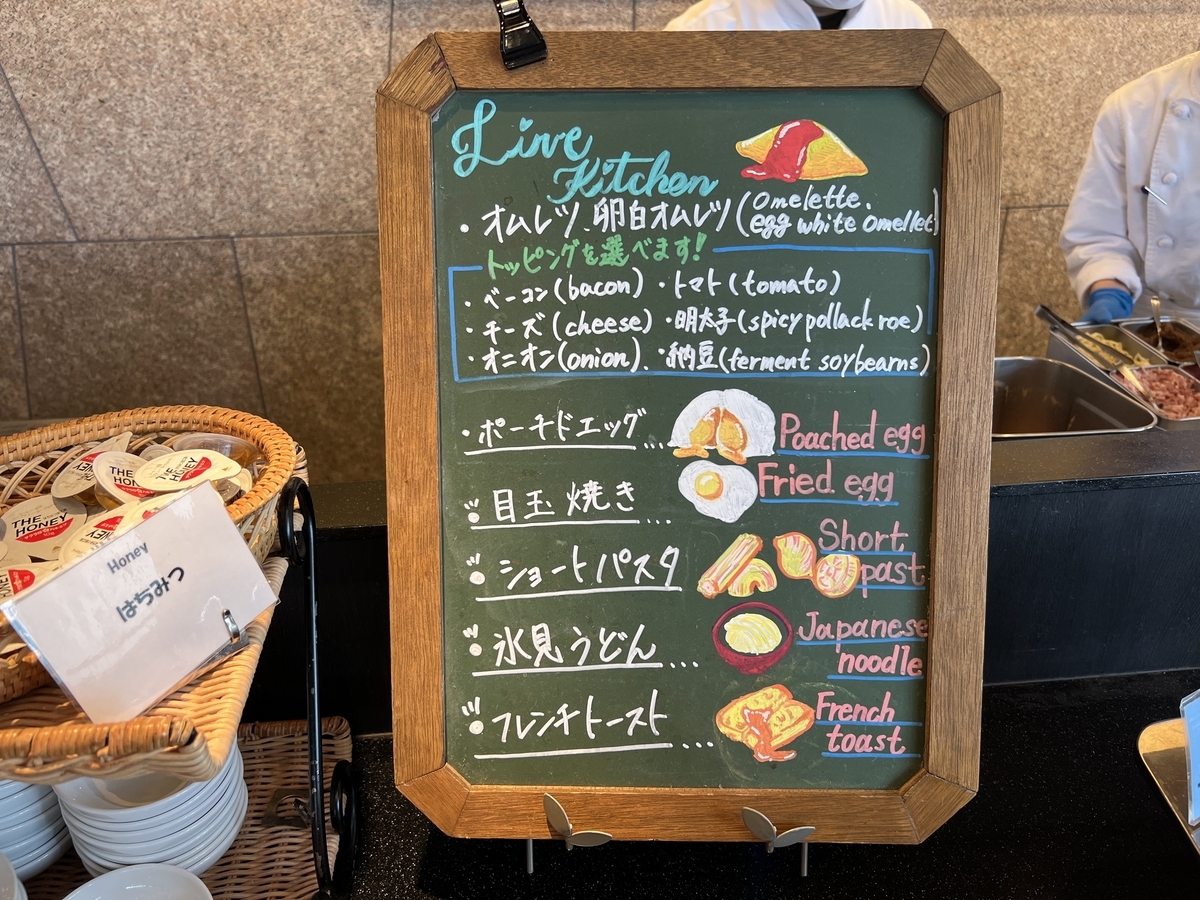 Live
Kitchen
・オムレツ、卵白オムレツ(Omelette、
egg white omellet)
トッピングを選べます!
・ベーコン(bacon) ・トマト(tomato)
・チーズ(cheese) ・明太子(spicy pollack roe)
・オニオン(onion)、・納豆(ferment soybearns)
・ポーチドエッグ... Poached egg
目玉焼き... Fried egg
ショートパスタ Short
past
氷見うどん... Japanese
noodle
フレンチトースト... French
toast
THE
HONEY
THE
HONEY
THE
HONEY
Honey
はちみつ